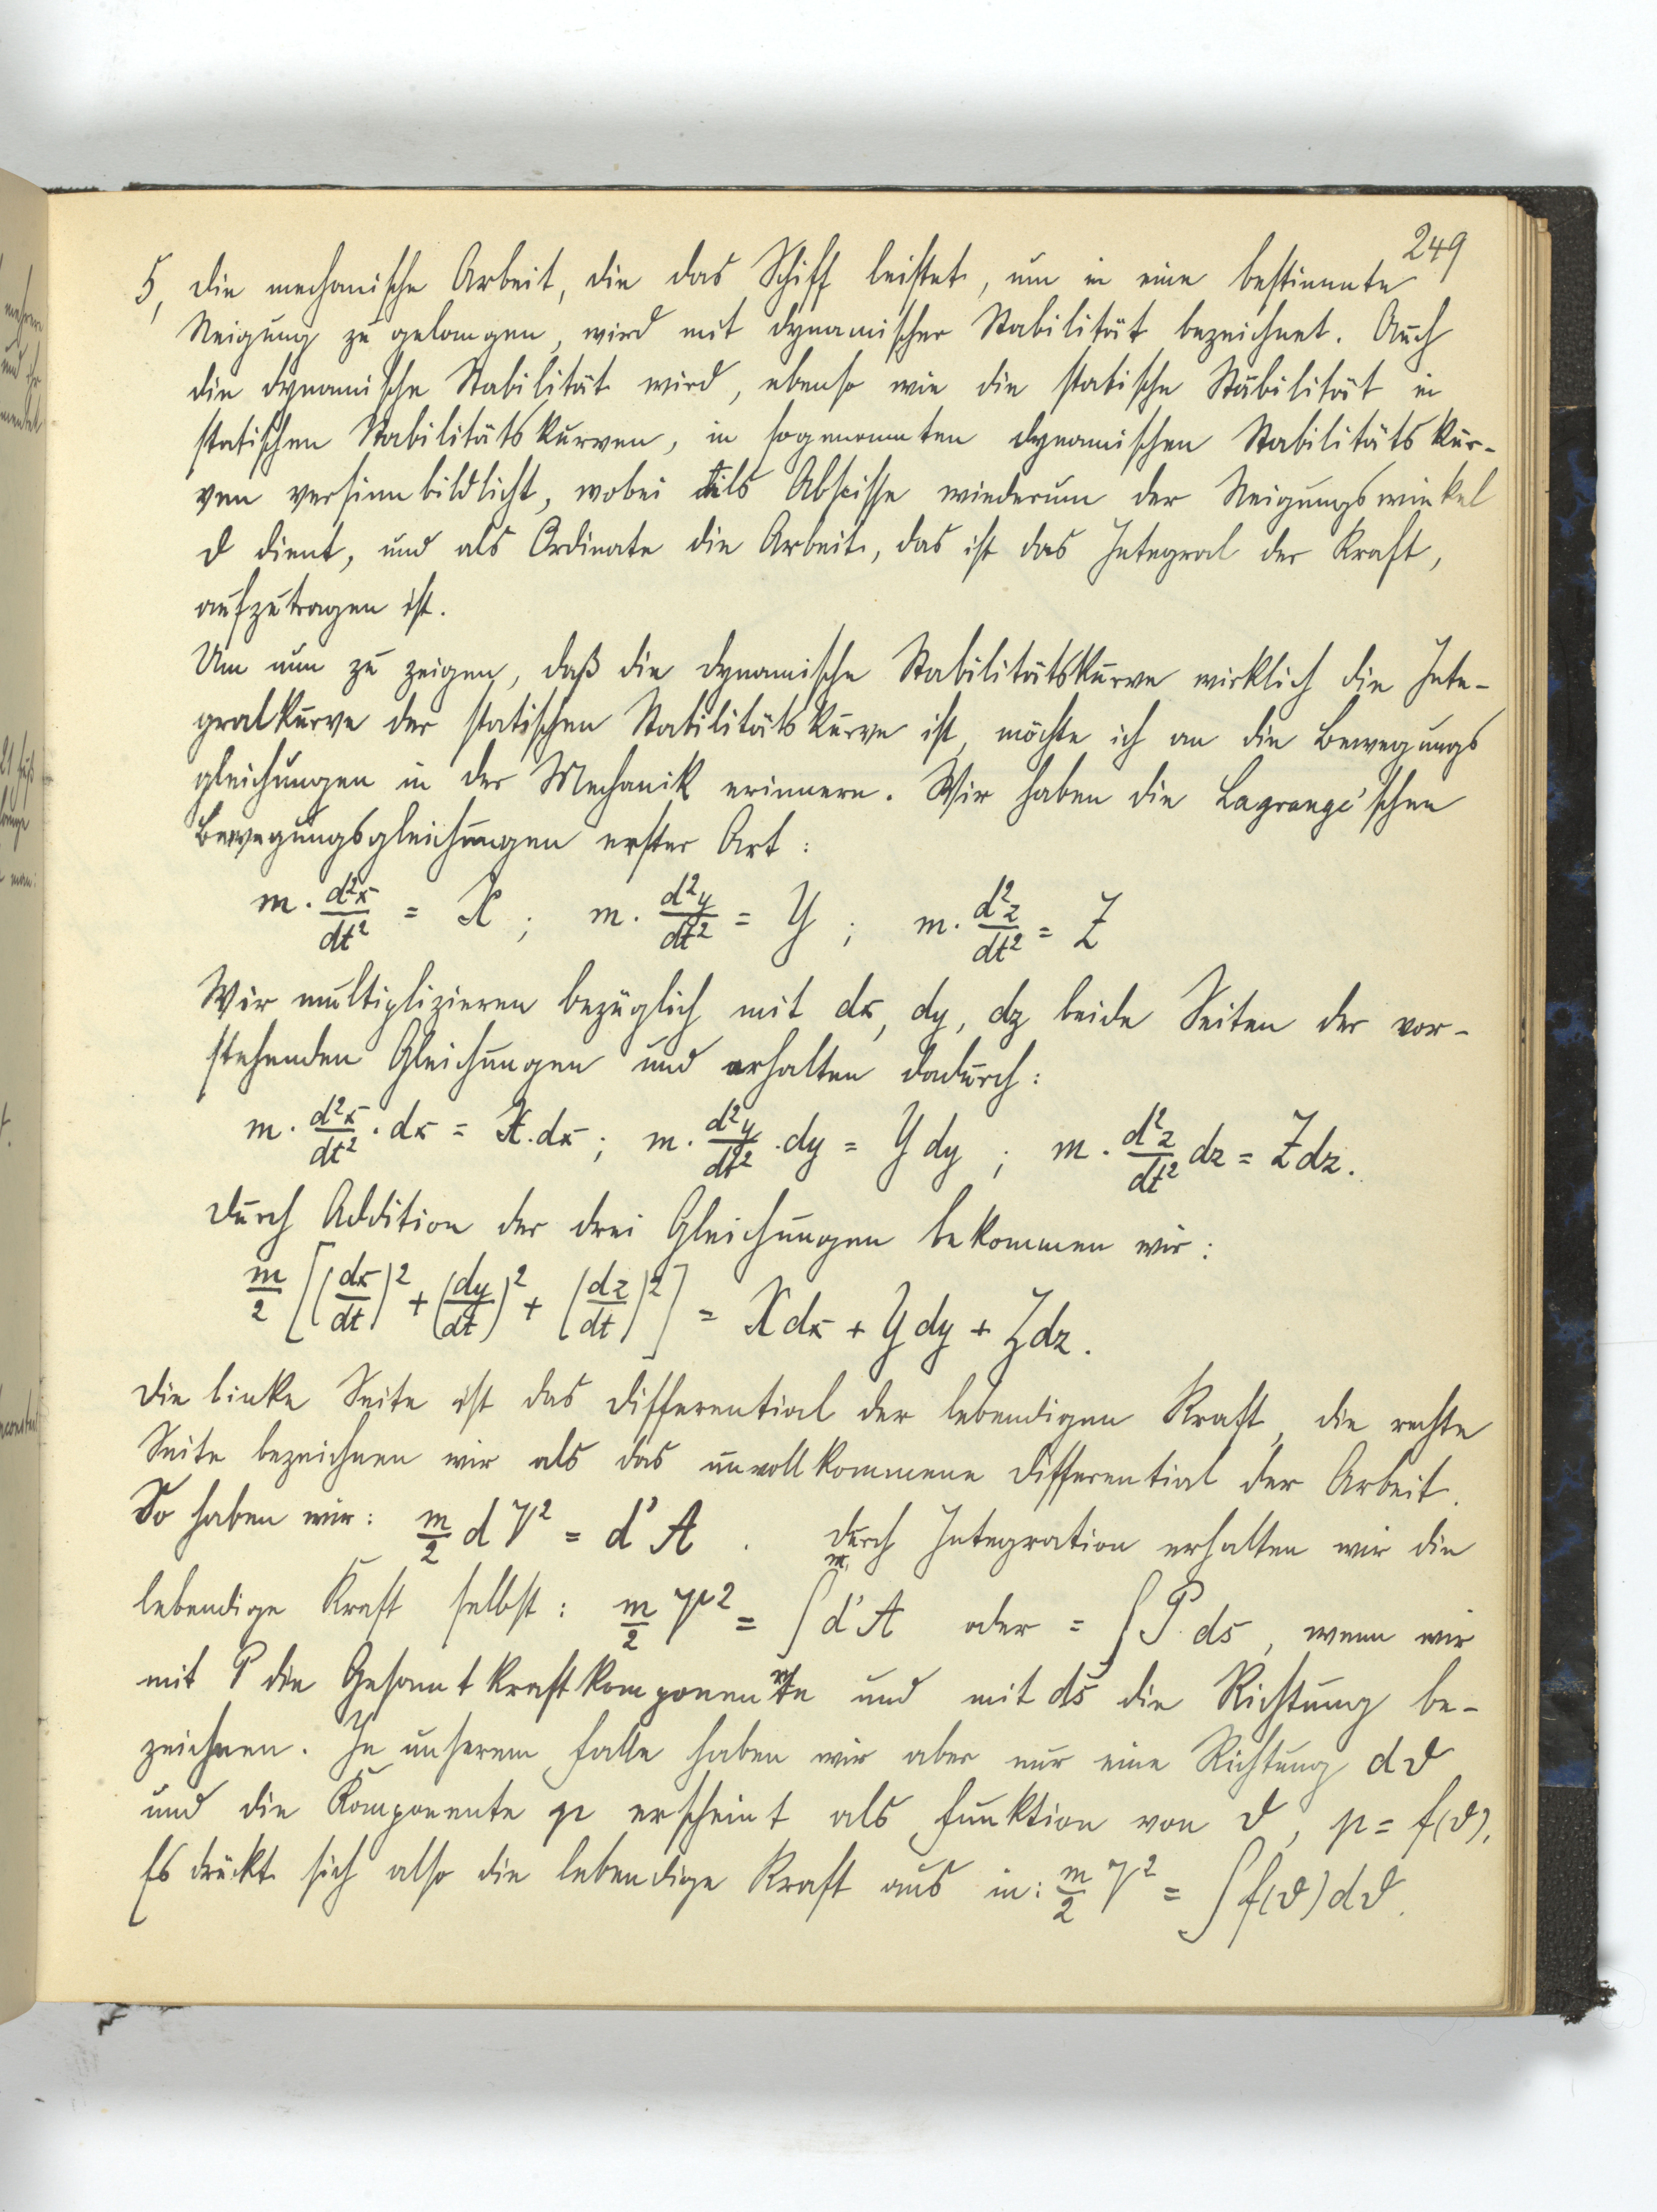 249
5, Die mechanische Arbeit, die das Schiff leistet, um in eine bestimmte
Neigung zu gelangen, wird mit dynamischer Stabilität bezeichnet. Auch
die dynamische Stabilität wird, ebenso wie die statische Stabilität in
statischen Stabilitätskurven, in sogenannten dynamischen Stabilitätskur-
ven versinnbildlicht, wobei als Abscisse wiederum der Neigungswinkel
ϑ dient, und als Ordinate die Arbeit, das ist das Integral der Kraft,
aufzutragen ist.
Um nun zu zeigen, daß die dynamische Stabilitätskurve wirklich die Inte-
gralkurve der statischen Stabilitätskurve ist, möchte ich an die Bewegungs
gleichungen in der Mechanik erinnern. Wir haben die Lagrange'schen
Bewegungsgleichungen erster Art:
m · d²x/dt² = X ; m · d²y/dt² = Y ; m · d²z/dt² = Z
Wir multiplizieren bezüglich mit dx, dy, dz beide Seiten der vor-
stehenden Gleichungen und erhalten dadurch:
m · d²x/dt² · dx = X · dx ; m · d²y/dt² · dy = Y dy ; m · d²z/dt² dz = Z dz.
Durch Addition der drei Gleichungen bekommen wir:
m/2 [(dx/dt)² + (dy/dt)² + (dz/dt)²] = X dx + Y dy + Z dz.
Die linke Seite ist das Differential der lebendigen Kraft, die rechte
Seite bezeichnen wir als das unvollkommene Differential der Arbeit.
So haben wir: m/2 d V² = d' A . Durch Integration erhalten wir die
lebendige Kraft selbst: m/2 V² = ∫ d' A oder = ∫ P ds, wenn wir
mit P die Gesamtkraftkomponente und mit ds die Richtung be-
zeichnen. In unserem Falle haben wir aber nur eine Richtung dϑ
und die Komponente p erscheint als Funktion von ϑ, p = f(ϑ).
Es drückt sich also die lebendige Kraft aus in: m/2 V² = ∫ f(ϑ) dϑ.